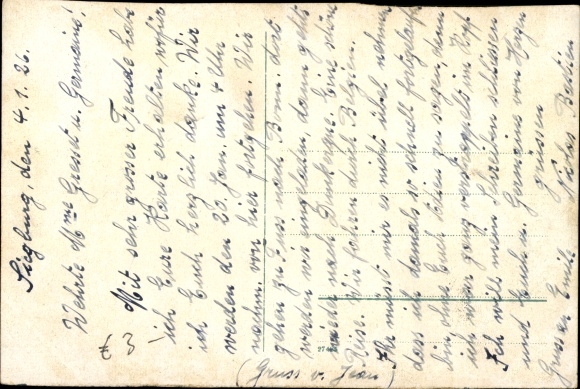 Siegburg, den 4.1.26.
Wehrte Mme Greset u. Germaine!
Mit sehr grosser Freude habe
ich Eure Karte erhalten wofür
ich Euch herzlich danke. Wir
werden den 23. Jan. um 4 Uhr
nachm. von hier fortgehen. Wir
gehen zu Fuss nach Bonn. dort
werden wir eingeladen, dann geht's
weiter nach Dunkerque. Eine schöne
Reise. Wir fahren durch Belgien.
Ihr müsst mir es nicht übel nehmen
dass ich damals so schnell fortgelaufen
bin ohne Euch adieu zu sagen, denn
ich war ganz verdappelt im Kopf
Ich will mein Schreiben schliessen
und Euch u. Germaine von
grüssen
Gruss Emil
(Gruss v. Jean)
€ 3-